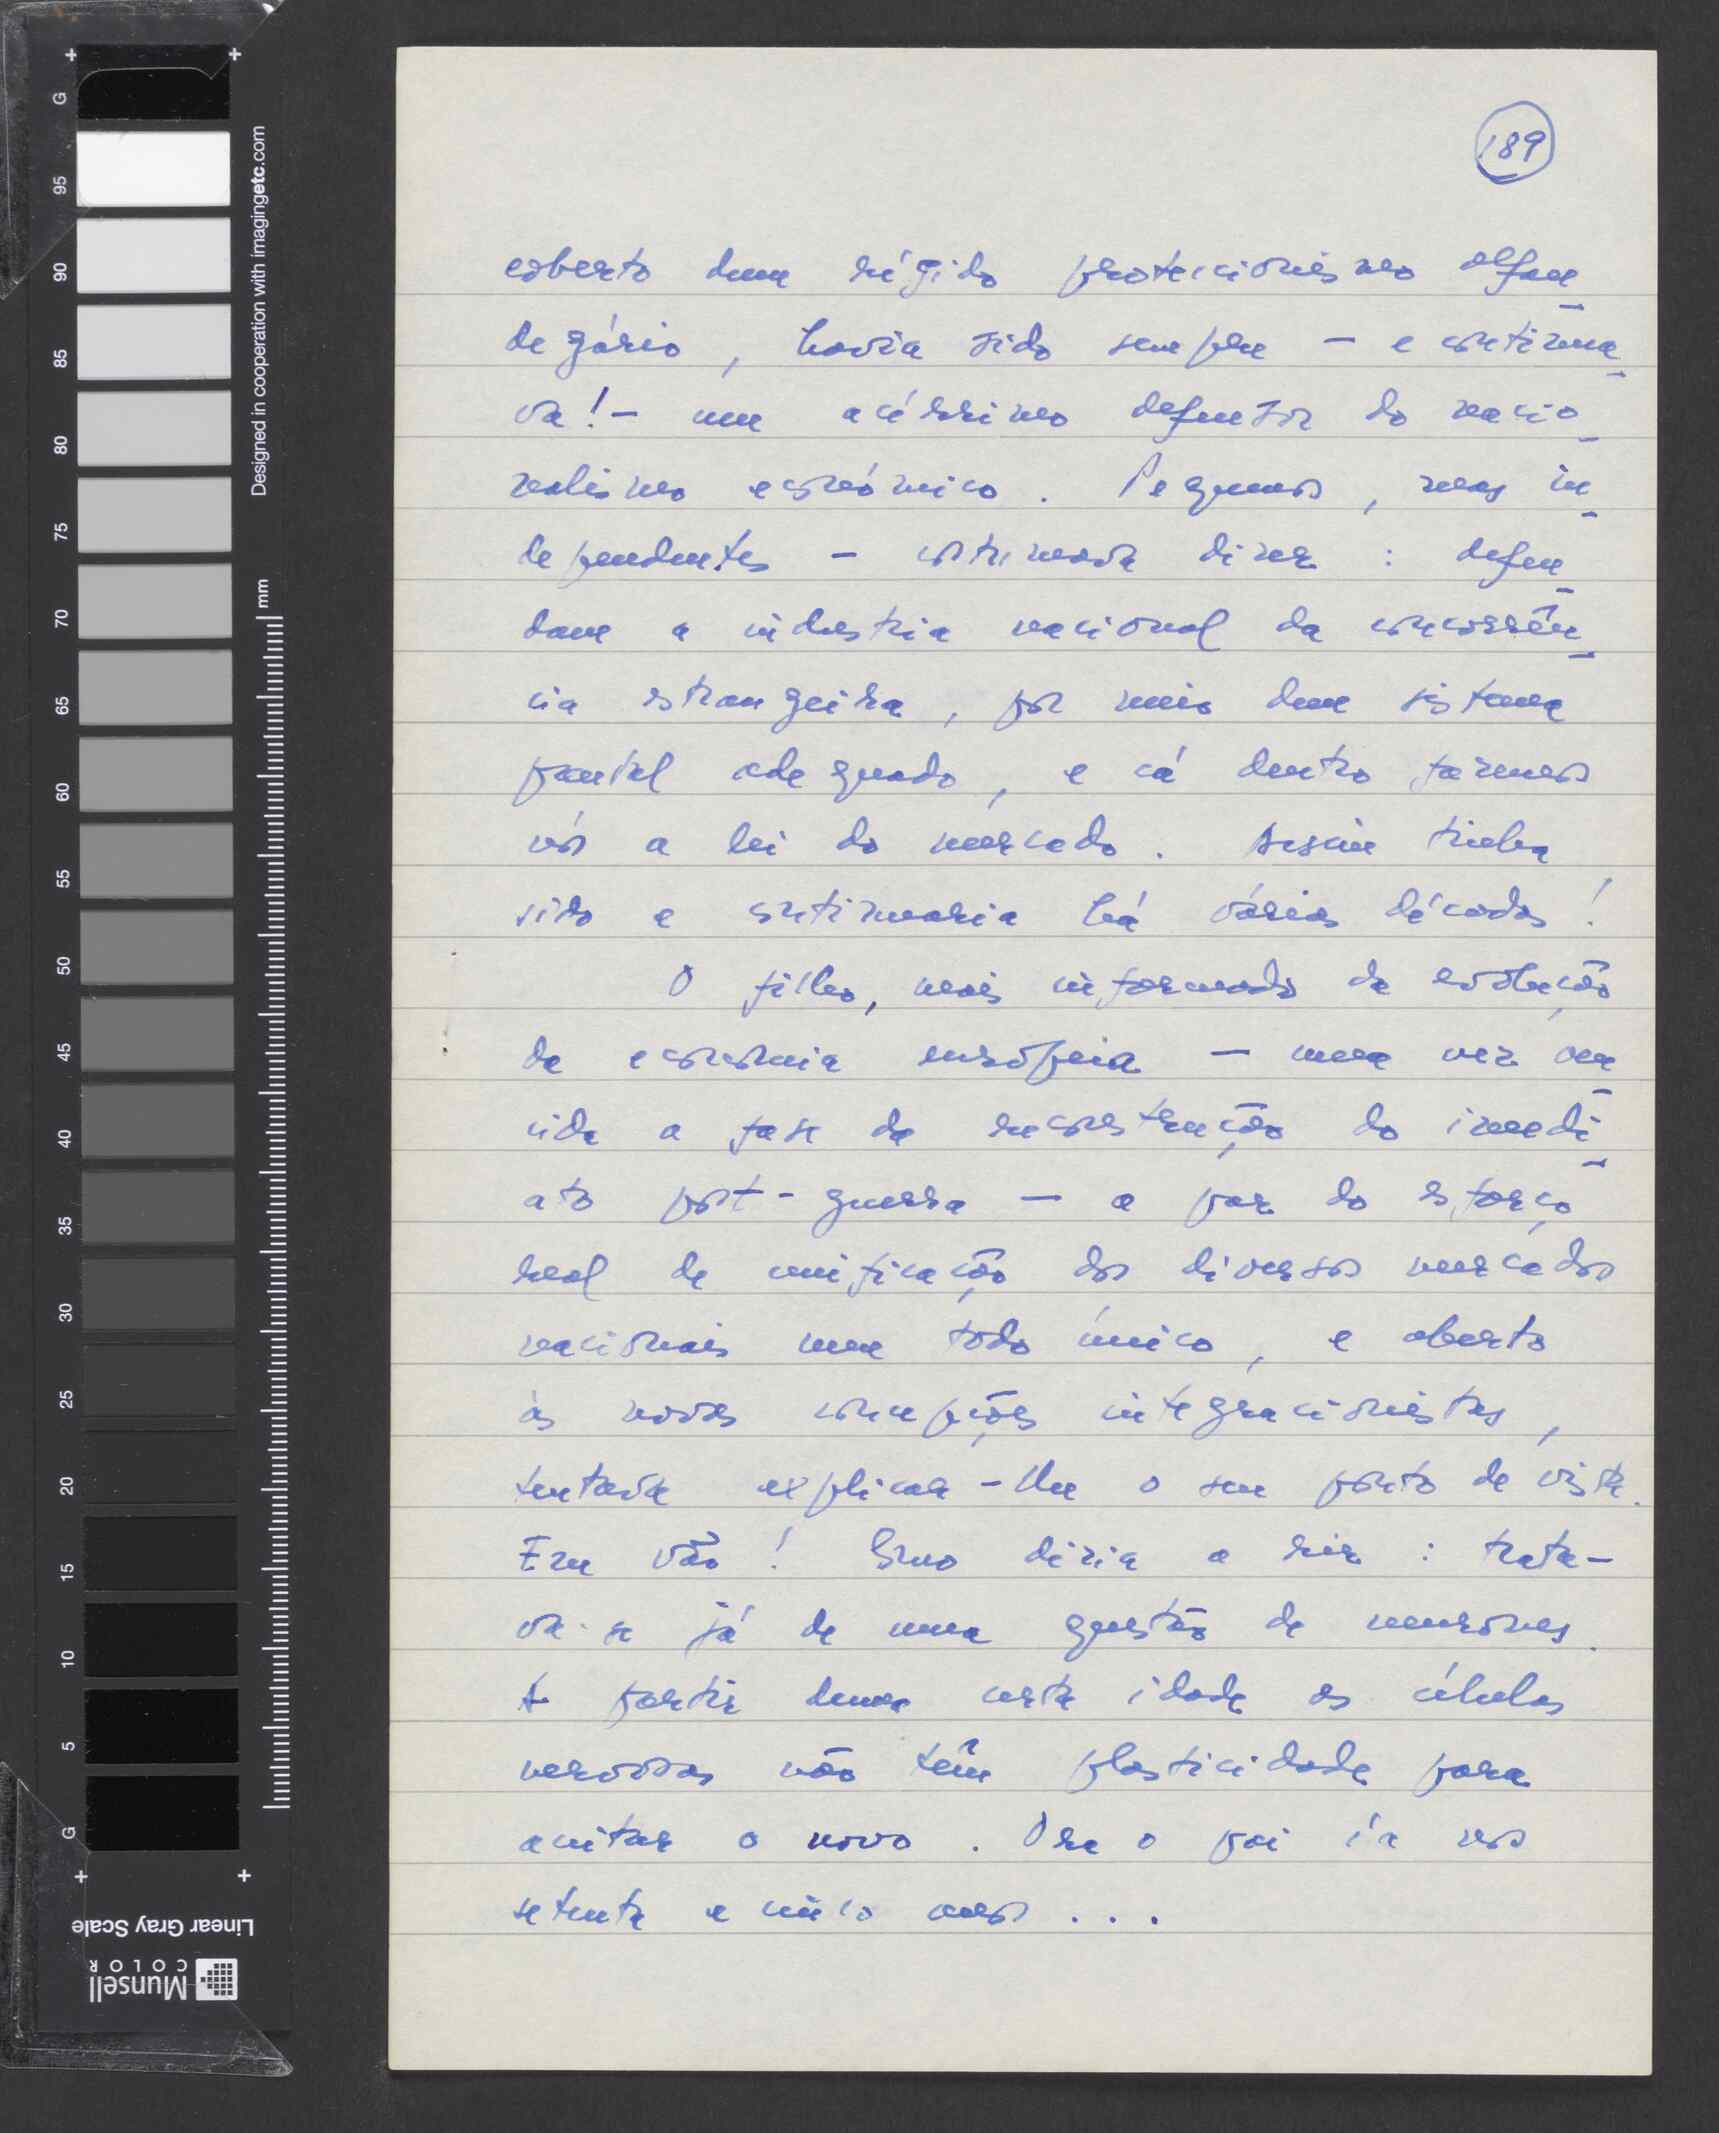 189
coberto dum rígido proteccionismo alfan
degário, havia sido sempre - e continua
va! - um acérrimo defensor do nacio
nalismo económico. Pequenos, mas in
dependentes - costumava dizer: defen
dam a indústria nacional da concorrên
cia estrangeira, por meio dum sistema
pautal adequado, e cá dentro faremos
nós a lei do mercado. Assim tinha
sido e continuaria há várias décadas!
O filho, mais informado da evolução
da economia europeia - uma vez ven
cida a fase da reconstrução do imedi
ato post-guerra - a par do esforço
real de unificação dos diversos mercados
nacionais num todo único, e aberto
às novas concepções integracionistas,
tentava explicar-lhe o seu ponto de vista.
Em vão! diria a rir: trata-
va-se já de uma questão de neurónes.
A partir duma certa idade as células
nervosas não têm plasticidade para
aceitar o novo. Ora o pai ia nos
setenta e cinco anos...
G
95
90
85
80
75
70
65
60
55
50
45
40
35
30
25
20
15
10
5
G
mm
Designed in cooperation with imagingetc.com
Linear Gray Scale
Munsell
COLOR